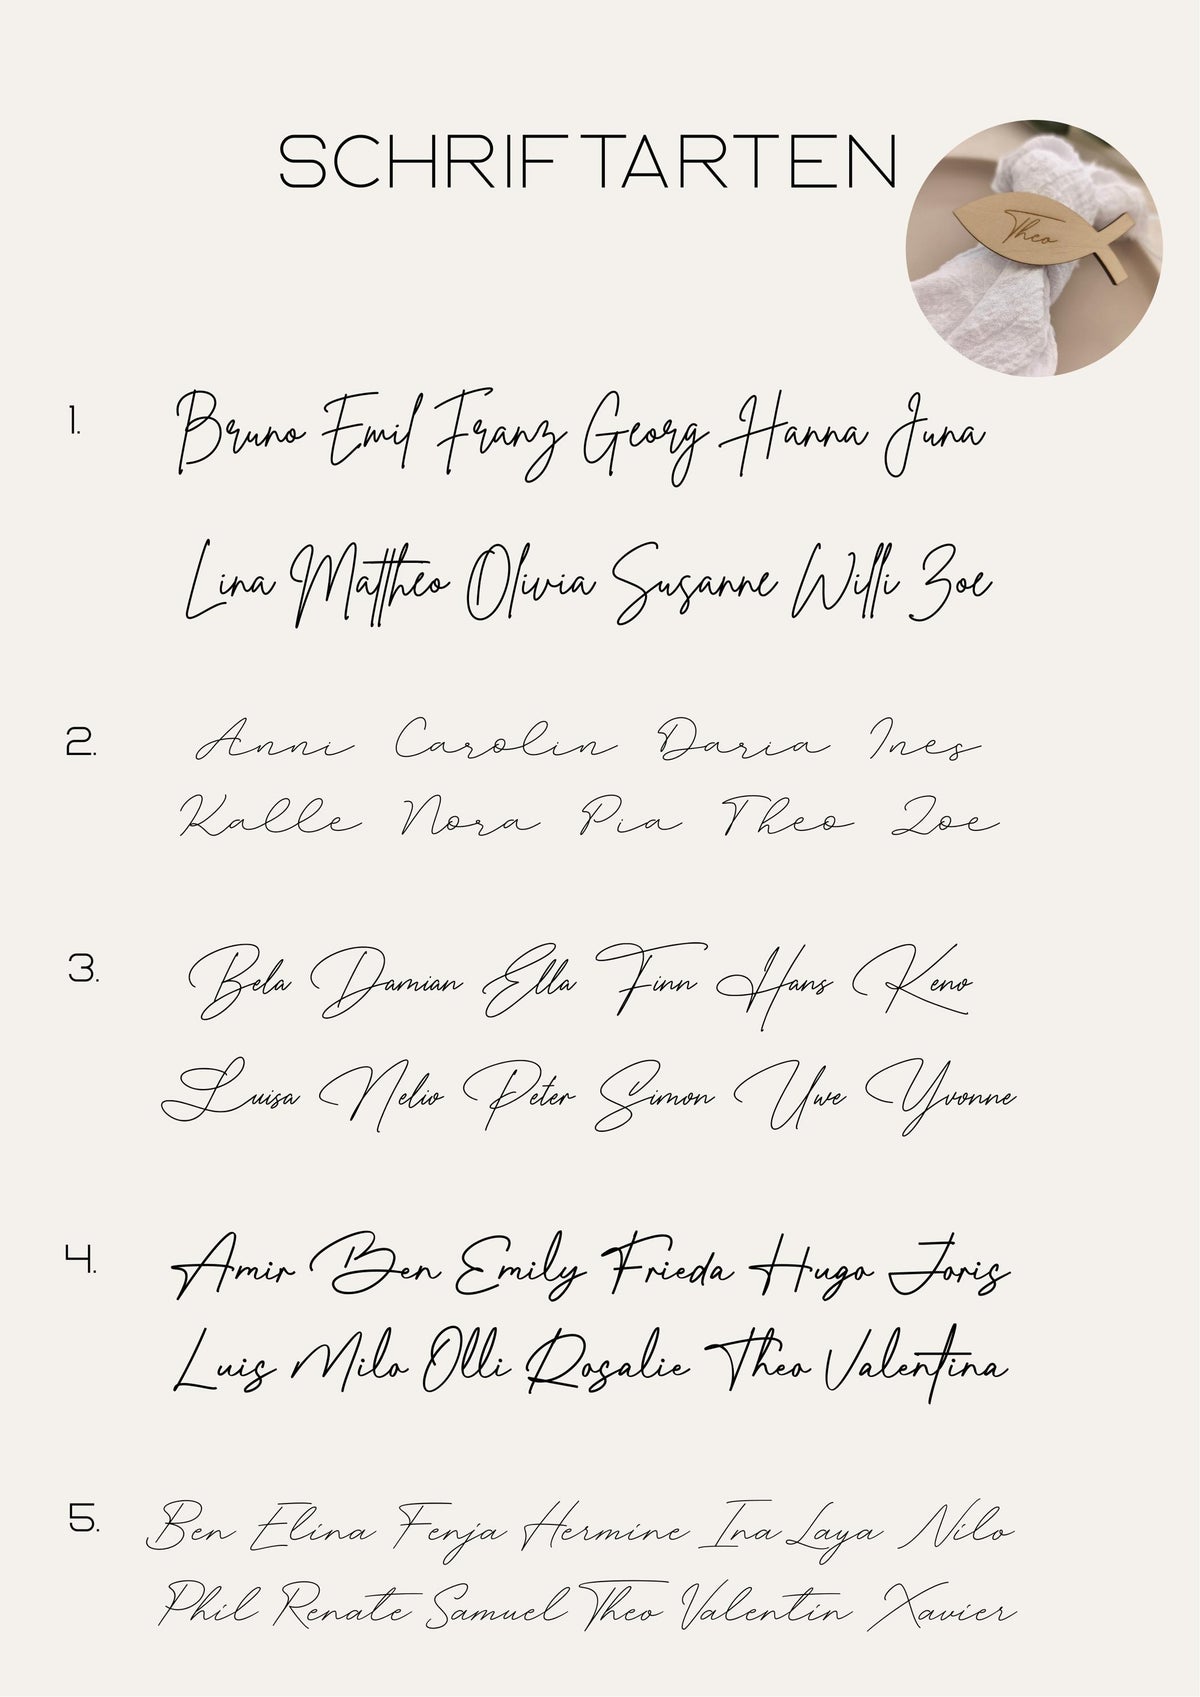 SCHRIFTARTEN
Theo
1.
Bruno Emil Franz Georg Hanna Juna
Lina Mattheo Olivia Susanne Willi Zoe
2.
Anni Carolin Daria Ines
Kalle Nora Pia Theo Zoe
3.
Bela Damian Ella Finn Hans Keno
Luisa Nelio Peter Simon Uwe Yvonne
4.
Amir Ben Emily Frieda Hugo Joris
Luis Milo Olli Rosalie Theo Valentina
5.
Ben Elina Fenja Hermine Ina Laya Nilo
Phil Renate Samuel Theo Valentin Xavier